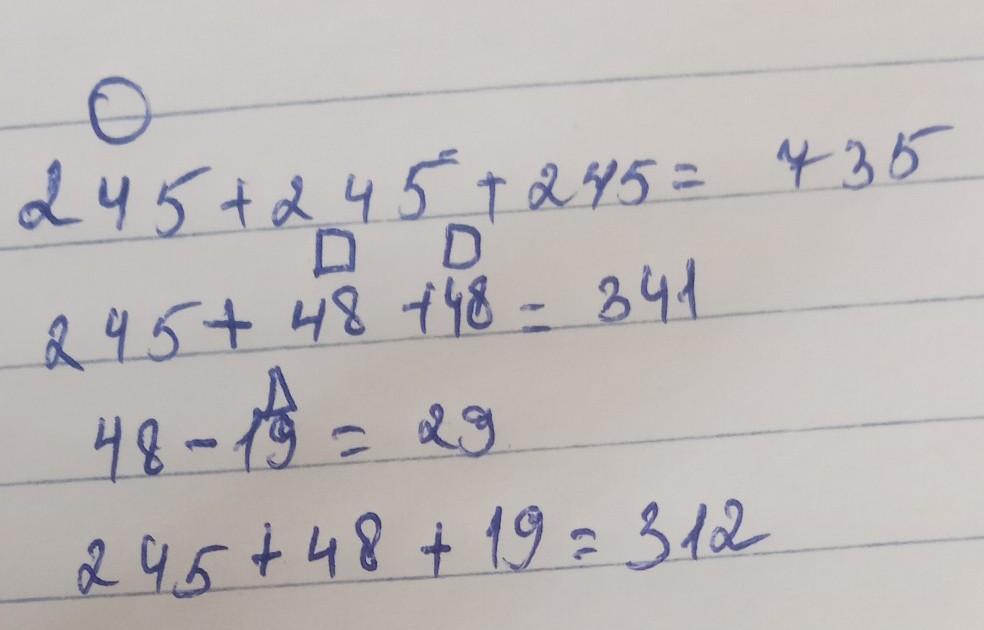 245+245+245= 735
245+ 48 +48= 341
48-19= 29
245+48+19=312